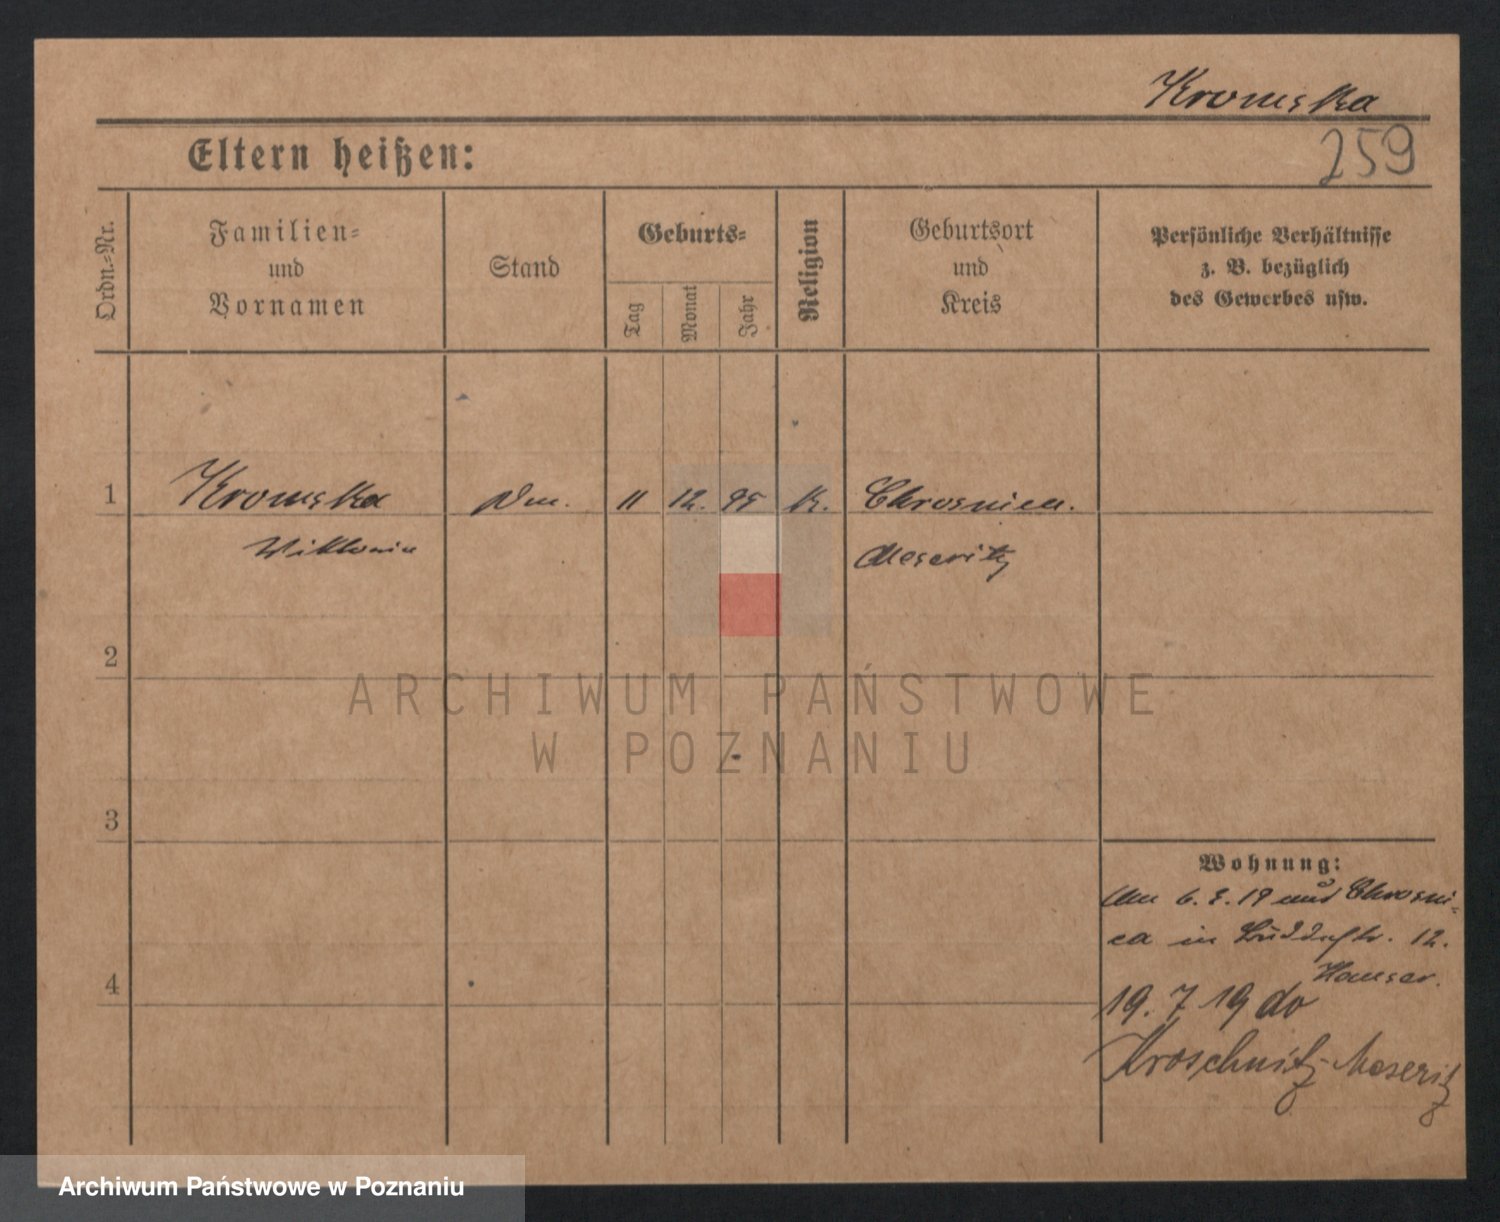 Kromska
259
Eltern heißen:
Ordn.-Nr.
Familien-
und
Vornamen
Stand
Geburts-
Tag
Monat
Jahr
Religion
Geburtsort
und
Kreis
Persönliche Verhältnisse
z. B. bezüglich
des Gewerbes usw.
1 Kromska 11 12. 95 K. Chrosnica.
Wiktoria Meseritz
2
ARCHIWUM PAŃSTWOWE
W POZNANIU
3
Wohnung:
6. 19 aus Chrosni-
ca in 12.
4
19. 7 19 do
Kroschnitz-Meseritz
Archiwum Państwowe w Poznaniu